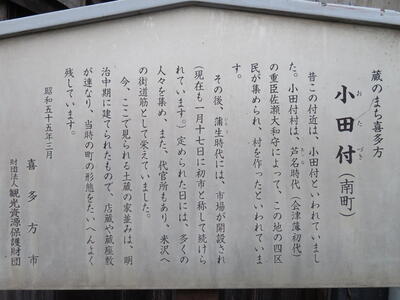 蔵のまち喜多方
小田付（南町）
おたづき
昔この付近は、小田付といわれていまし
た。小田付村は、芦名時代（会津藩初代）
の重臣佐瀬大和守によって、この地の四区
民が集められ、村を作ったといわれていま
す。
その後、蒲生時代には、市場が開設され
（現在も一月十七日に初市と称して続けら
れています。）定められた日には、多くの
人々を集め、また、代官所もあり、米沢へ
の街道筋として栄えていました。
今、ここで見られる土蔵の家並みは、明
治中期に建てられたもので、店蔵や蔵座敷
が連なり、当時の町の形態をたいへんよく
残しています。
昭和五十五年三月
喜多方市
財団法人観光資源保護財団